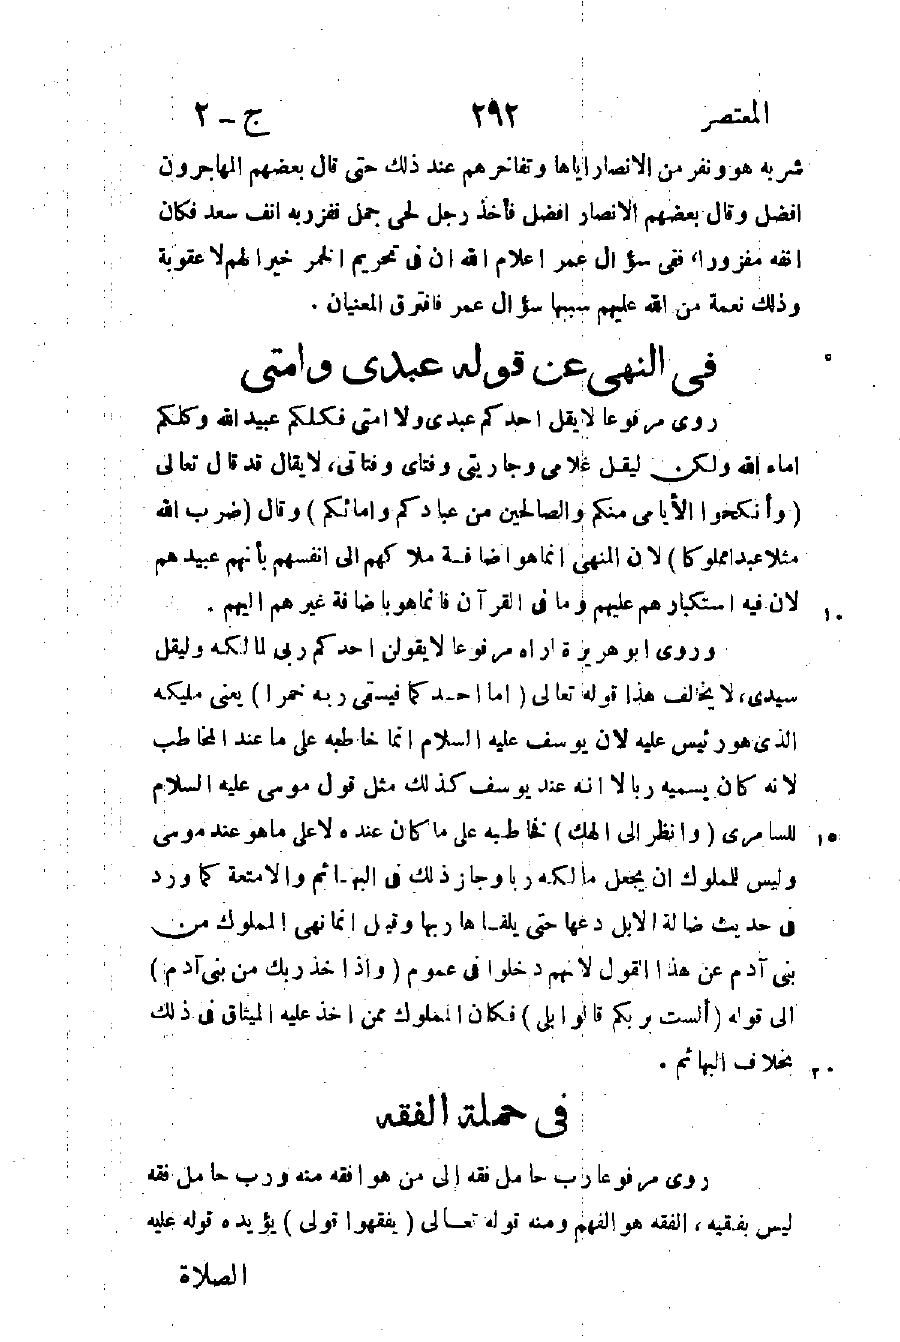 المعتصر ٢٩٢ ج - ٢
شربه هو ونفر من الانصار اياها وتفاخرهم عند ذلك حتى قال بعضهم المهاجرون
افضل وقال بعضهم الانصار افضل فأخذ رجل لحى جمل ففزر به انف سعد فكان
انفه مفزورا، ففى سؤال عمر اعلام الله ان فى تحريم الخمر خيرا لهم لا عقوبة
وذلك نعمة من الله عليهم سببها سؤال عمر فافترق المعنيان .
فى النهى عن قوله عبدى وامتى
روى مرفوعا لا يقل احدكم عبدى ولا امتى فكلكم عبيد الله وكلكم
اماء الله ولكن ليقل غلامى وجاريتى وفتاى وفتاتى، لا يقال قد قال تعالى
( وأنكحوا الأيامى منكم والصالحين من عبادكم وامائكم ) وقال (ضرب الله
مثلا عبدا مملوكا ) لان المنهى انما هو اضافة ملاكهم الى انفسهم بأنهم عبيدهم
لان فيه استكبارهم عليهم وما فى القرآن فانما هو باضافة غيرهم اليهم . ١٠
وروى ابو هريرة اراه مرفوعا لا يقولن احدكم ربى لمالكه وليقل
سيدى، لا يخالف هذا قوله تعالى ( اما احدكما فيسقى ربه خمرا ) يعنى مليكه
الذى هو رئيس عليه لان يوسف عليه السلام انما خاطبه على ما عند المخاطب
لانه كان يسميه ربا لا انه عند يوسف كذلك مثل قول موسى عليه السلام
للسامرى ( وانظر الى الهك ) فخاطبه على ما كان عنده لا على ما هو عند موسى ١٥
وليس للملوك ان يجعل مالكه ربا وجاز ذلك فى البهائم والامتعة كما ورد
فى حديث ضالة الابل دعها حتى يلقاها ربها وقيل انما نهى المملوك من
بنى آدم عن هذا القول لانهم دخلوا فى عموم ( واذ اخذ ربك من بنى آدم )
الى قوله ( ألست بربكم قالوا بلى ) فكان المملوك ممن اخذ عليه الميثاق فى ذلك
بخلاف البهائم . ٢٠
فى حملة الفقه
روى مرفوعا رب حامل فقه إلى من هو افقه منه ورب حامل فقه
ليس بفقيه ، الفقه هو الفهم ومنه قوله تعالى ( يفقهوا قولى ) يؤيده قوله عليه
الصلاة